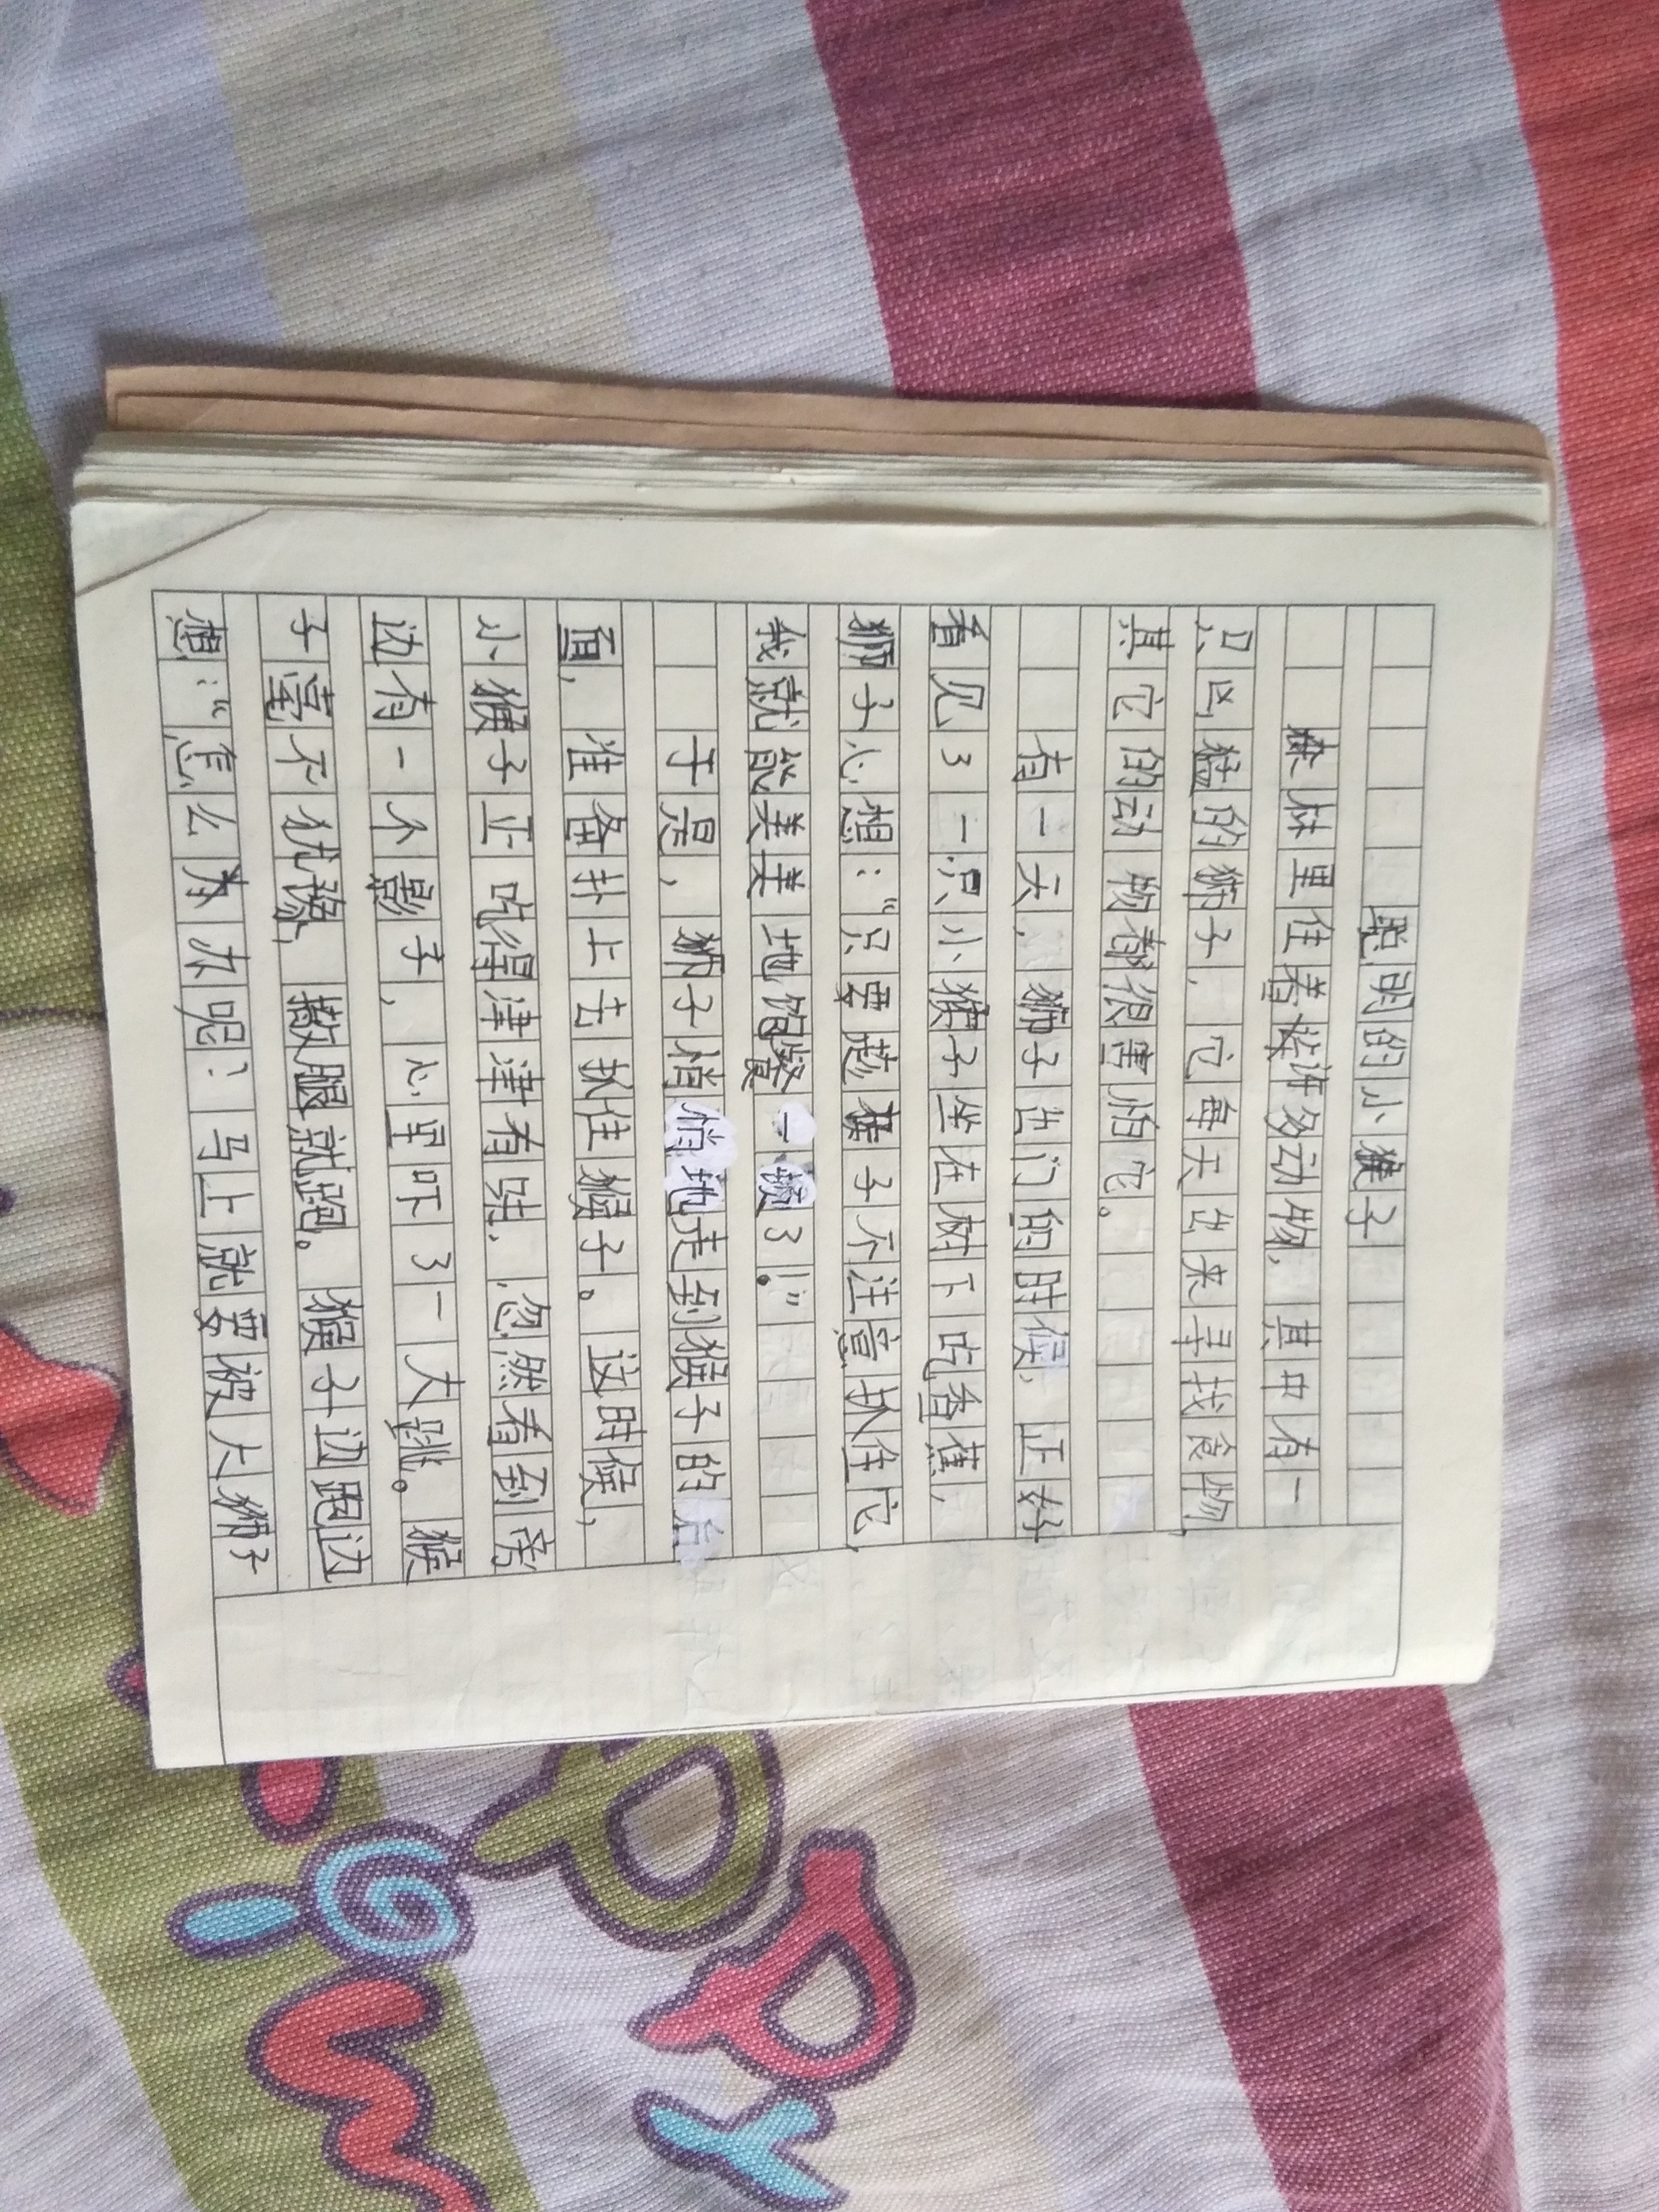 聪明的小猴子
森林里住着许多动物，其中有一
只凶猛的狮子，它每天出来寻找食物，
其它的动物都很害怕它。
有一天，狮子出门的时候，正好
看见了一只小猴子坐在树下吃香蕉，
狮子心想：“只要趁猴子不注意抓住它，
我就能美美地饱餐一顿了！”
于是，狮子悄悄地走到猴子的后
面，准备扑上去抓住猴子。这时候，
小猴子正吃得津津有味，忽然看到旁
边有一个影子，心里吓了一大跳。猴
子毫不犹豫，撒腿就跑。猴子边跑边
想：“怎么办呢？马上就要被大狮子